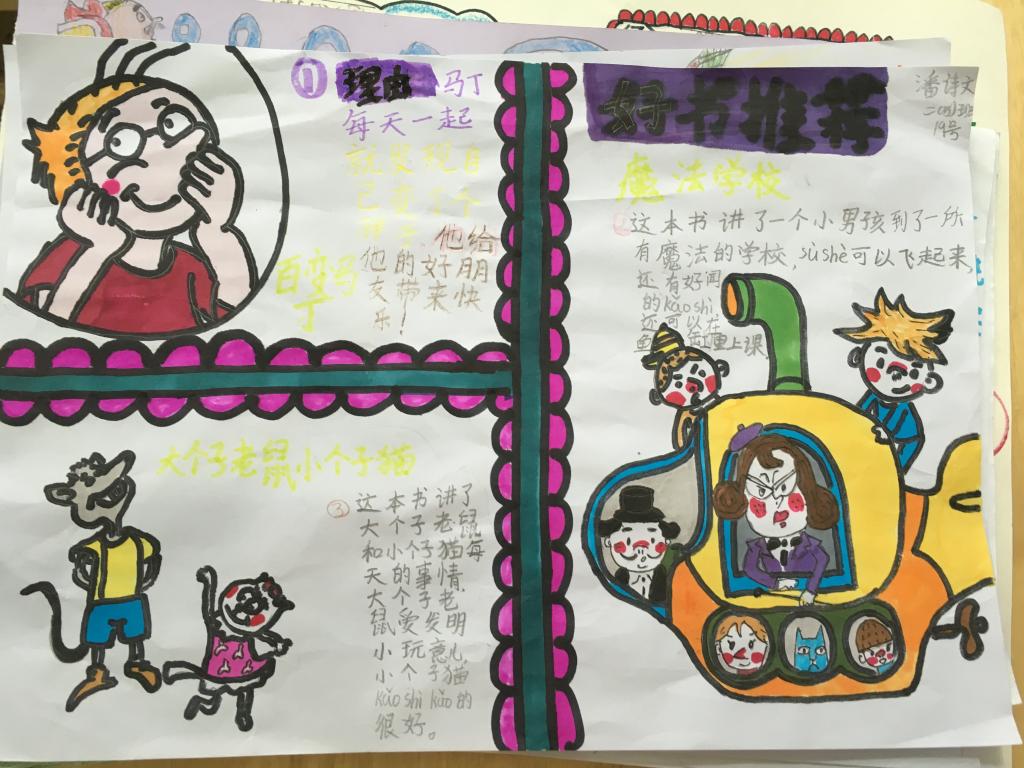 好书推荐
潘诗文
二(4)班
19号
① 理由 马丁
每天一起
就发现自
己变了个
样子.他给
他的好朋
友带来快
乐！
百变马
丁
魔法学校
②这本书讲了一个小男孩到了一所
有魔法的学校,sùshè可以飞起来
还有好闻
的kǎoshì
还可以在
鱼缸里上课
大个子老鼠小个子猫
③这本书讲了
大个子老鼠
和小个子猫每
天的事情.
大个子老
鼠爱发明
小玩意儿
小个子猫
kǎoshìkǎo的
很好。